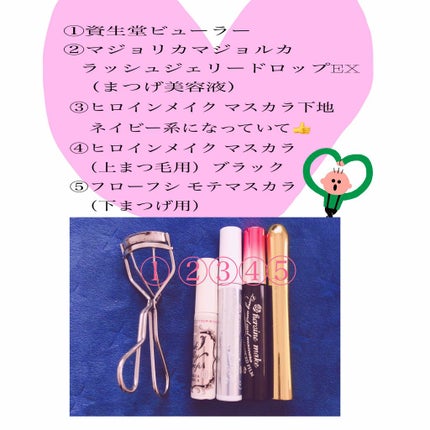 ①資生堂ビューラー
②マジョリカマジョルカ
ラッシュジェリードロップEX
（まつげ美容液）
③ヒロインメイク マスカラ下地
ネイビー系になっていて👍
④ヒロインメイク マスカラ
（上まつ毛用）ブラック
⑤フローフシ モテマスカラ
（下まつげ用）
①②③④⑤
heroine make